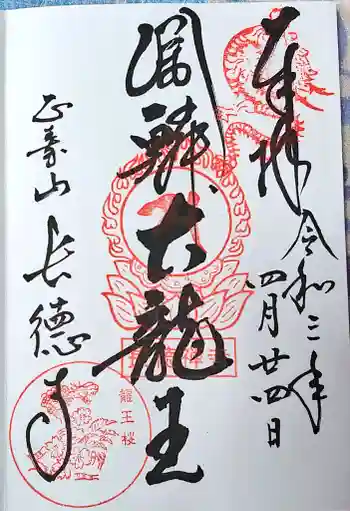 奉拝
令和三年
四月廿四日
大龍王
正寿山
長徳寺
龍王桜